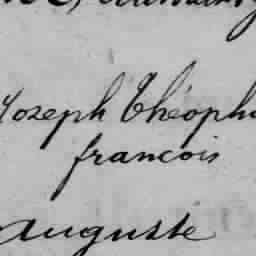 Joseph Théoph
francois
auguste